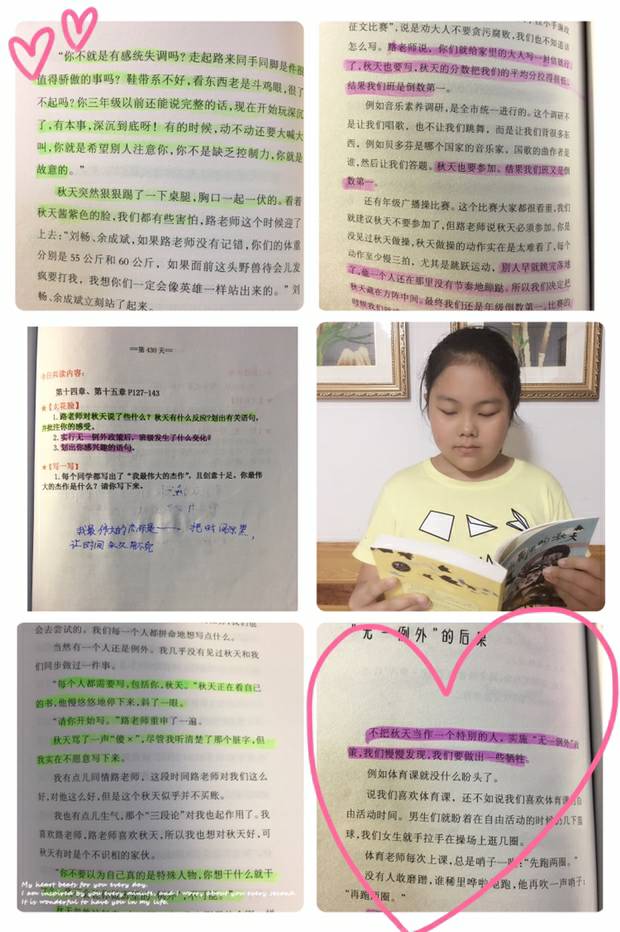 “你不就是有感统失调吗？走起路来同手同脚是件很
值得骄傲的事吗？鞋带系不好，看东西老是斗鸡眼，很了
不起吗？你三年级以前还能说完整的话，现在开始玩深沉
了，有本事，深沉到底呀！有的时候，动不动还要大喊大
叫，你就是希望别人注意你，你不是缺乏控制力，你就是
故意的。”
秋天突然狠狠踢了一下桌腿，胸口一起一伏的。看着
秋天酱紫色的脸，我们都有些害怕，路老师这个时候迎了
上去：“刘畅、余成斌，如果路老师没有记错，你们的体重
分别是 55 公斤和 60 公斤，如果面前这头野兽待会儿发
疯要打我，我想你们一定会像英雄一样站出来的。”刘
畅、余成斌立刻站了起来。
征文比赛”，说是劝大人不要贪污腐败，我们也不知道该
怎么写。路老师说，你们就给家里的大人写一封信就行
了，秋天也要写，秋天的分数把我们的平均分拉得很低，
结果我们班是倒数第一。
例如音乐素养调研，是全市统一进行的。这个调研不
是让我们唱歌，也不让我们跳舞，而是让我们背很多东
西，例如贝多芬是哪个国家的音乐家，国歌的曲作者是
谁，然后让我们答题。秋天也要参加。结果我们班又是倒
数第一。
还有年级广播操比赛。这个比赛大家都很看重，我们
就建议秋天不要参加了，但路老师说秋天必须参加。你是
没见过秋天做操，秋天做操的动作实在是太难看了，每个
动作至少慢三拍，尤其是跳跃运动，别人早就跳完落地
了，他一个人还在那里没有节奏地蹦跶。所以我们决定把
秋天藏在方阵中间。最终我们还是年级倒数第一。比赛的
==第 430 天==
今日共读内容：
第十四章、第十五章 P127-143
★【大花脸】
1. 路老师对秋天说了些什么？秋天有什么反应？划出有关语句，
并批注你的感受。
2. 实行无一例外政策后，班级发生了什么变化？
3. 划出你感兴趣的语句。
★【写一写】
1. 每个同学都写出了“我最伟大的杰作”，且创意十足。你最伟
大的杰作是什么？请你写下来。
我最伟大的杰作是——把时间
让时间永久
的秋天
会去尝试的。我们每一个人都拼命地想写点什么。
当然有一个人还是例外。我几乎没有见过秋天和我
们同步做过一件事。
“每个人都需要写，包括你，秋天。”秋天正在看自己
的书，他慢悠悠地停下来，斜了一眼。
“请你开始写。”路老师重申了一遍。
秋天骂了一声“傻×”，尽管我听清楚了那个脏字，但
我实在不愿意写下来。
我有点儿同情路老师，这段时间路老师对我们这么
好，对他这么好，但是这个秋天似乎并不买账。
我也有点儿生气，那个“三段论”对我也起作用了。我
喜欢路老师，路老师喜欢秋天，所以我也想对秋天好，可
秋天有时是个不识相的家伙。
“你不要以为自己真的是特殊人物，你想干什么就干
My heart beats for you every day.
I am inspired by you every minute, and I worry about you every second.
It is wonderful to have you in my life.
“无一例外”的后果
不把秋天当作一个特别的人，实施“无一例外”政
策，我们慢慢发现，我们要做出一些牺牲。
例如体育课就没什么盼头了。
说我们喜欢体育课，还不如说我们喜欢体育课的自
由活动时间。男生们就盼着在自由活动的时候打几下篮
球，我们女生就手拉手在操场上逛几圈。
体育老师每次上课，总是哨子一吹：“先跑两圈。”
没有人敢磨蹭，谁稀里哗啦地跑，他再吹一声哨子：
“再跑两圈。”